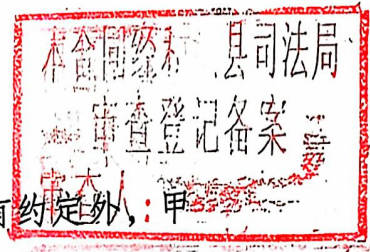 本合同经利 县司法局
审查登记备案
审查人
有约定外，甲